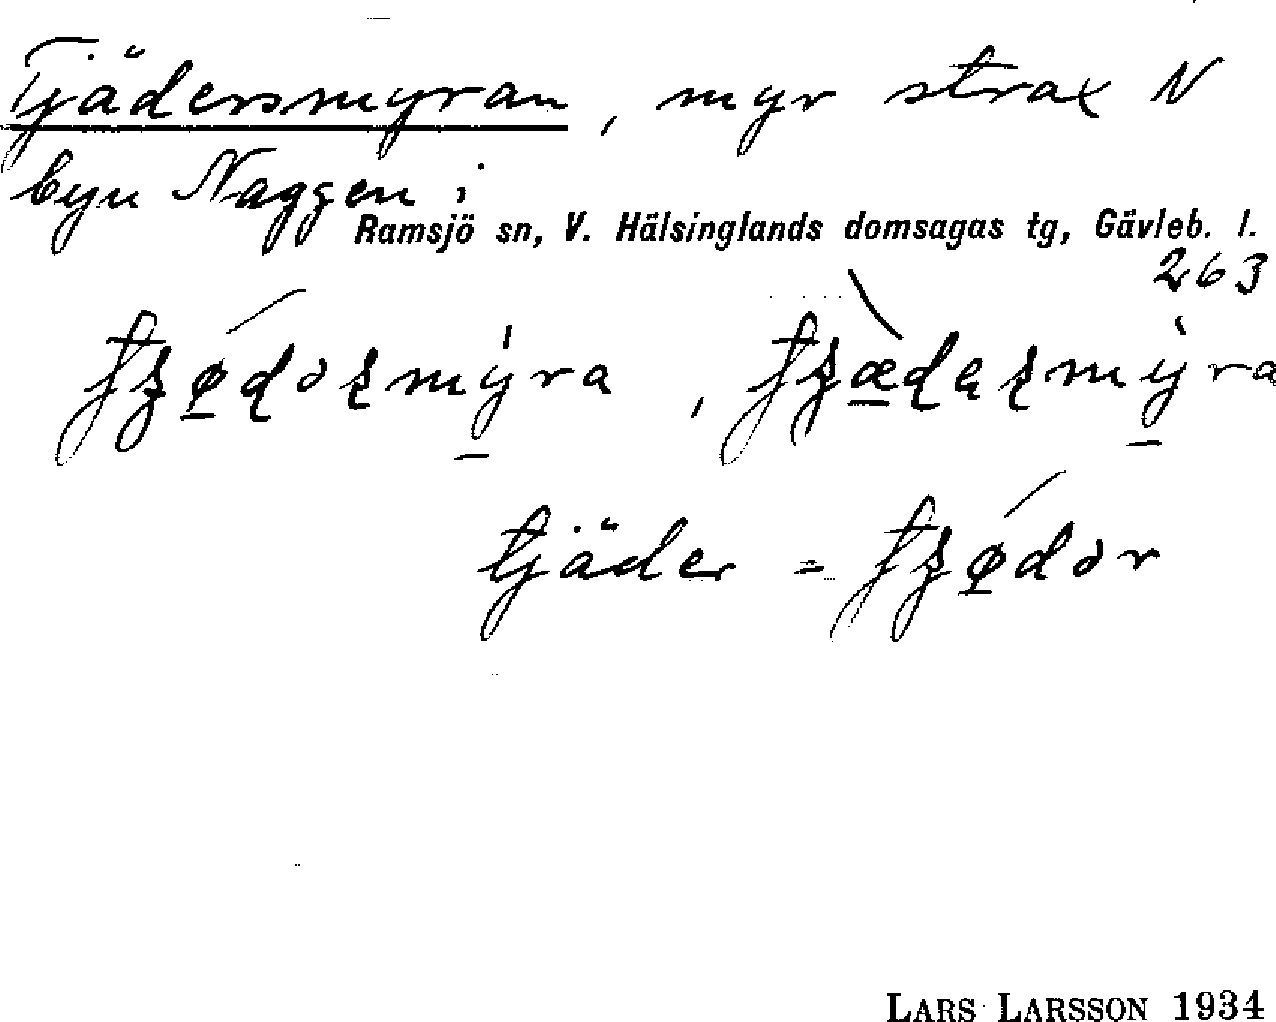 Tjädersmyran, myr strax N
byn Naggen i
Ramsjö sn, V. Hälsinglands domsagas tg, Gävleb. l.
263
tjäder =
LARS LARSSON 1934